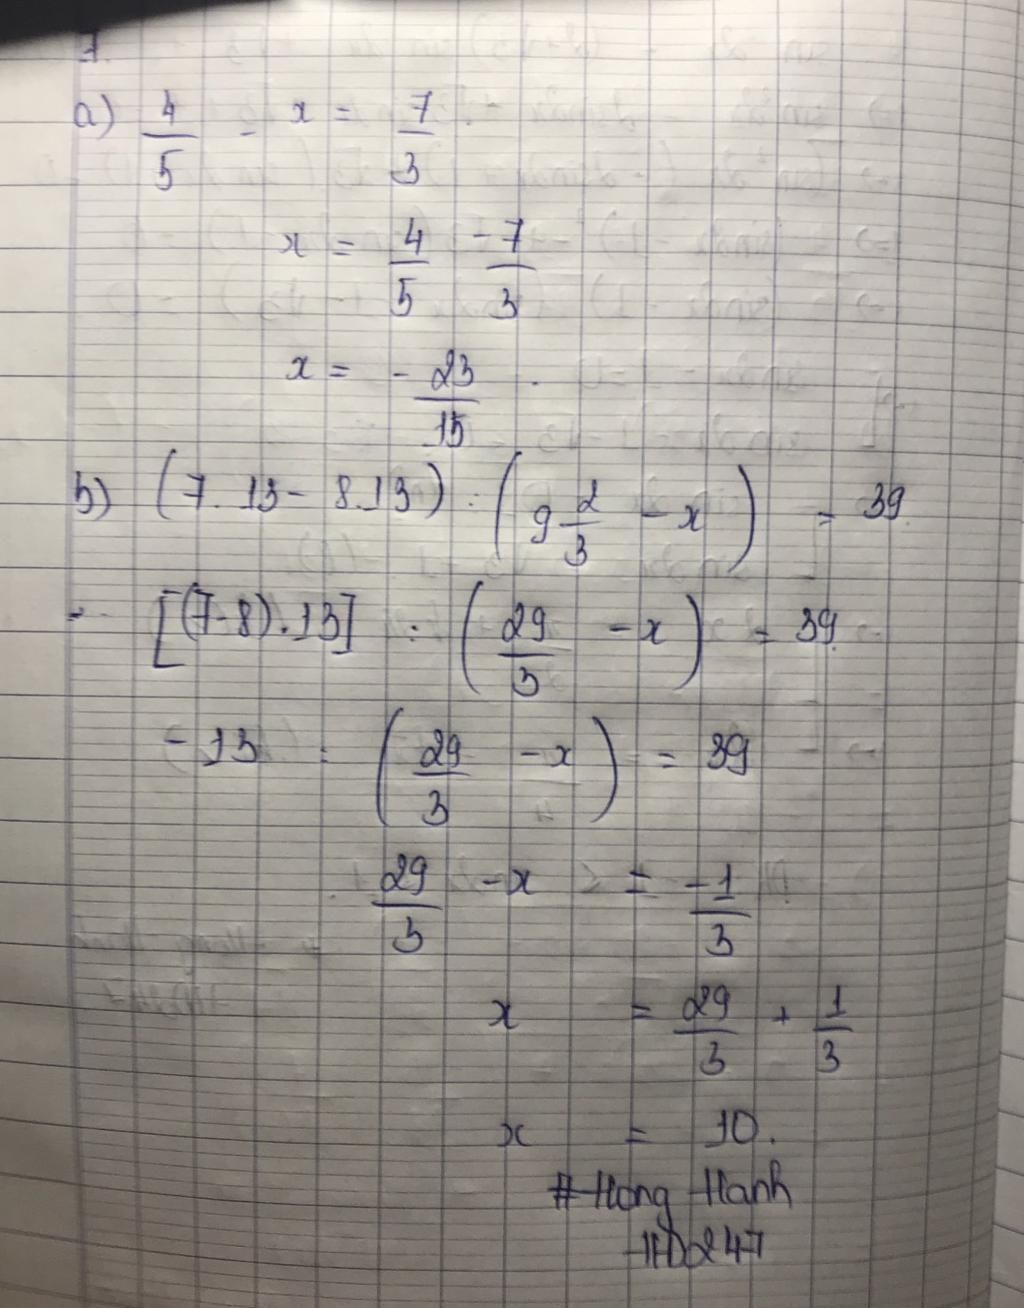 1.
a) 4/5 - x = 7/3
x = 4/5 - 7/3
x = - 23/15.
b) (7.13 - 8.13) : (9 2/3 - x) = 39
[(7-8).13] : (29/3 - x) = 39
-13 : (29/3 - x) = 39
29/3 - x = -1/3
x = 29/3 + 1/3
x = 10.
#Hong Hanh
HD247